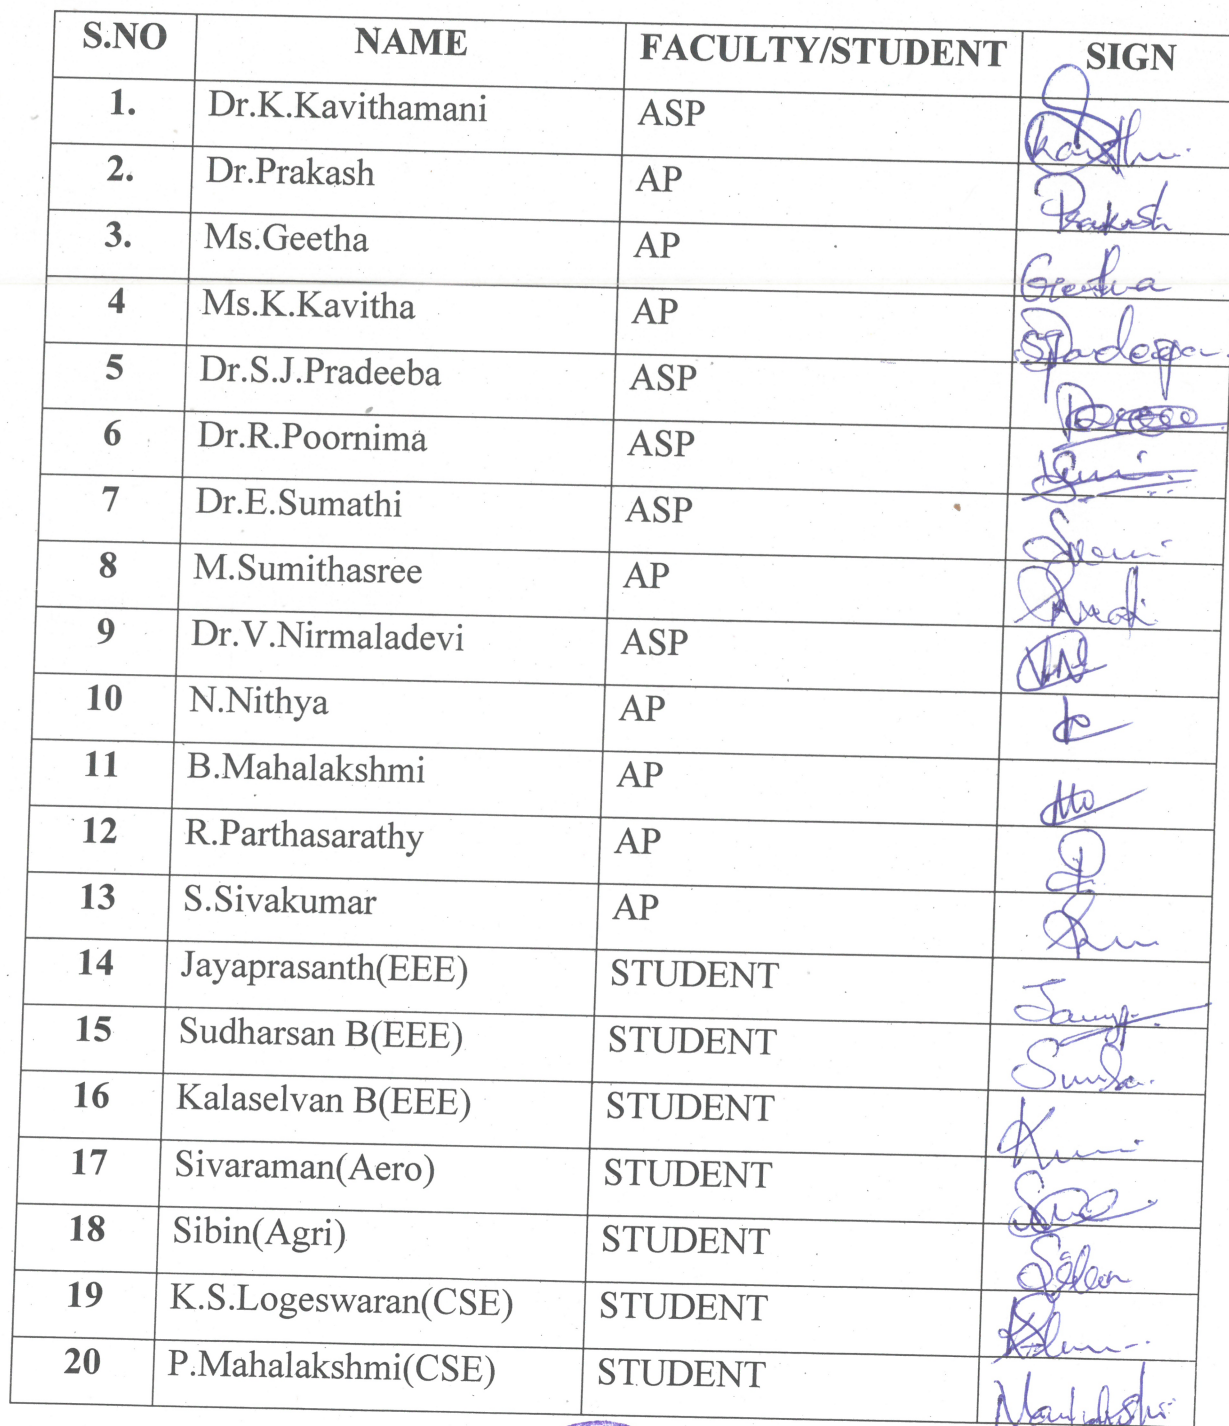 S.NO NAME FACULTY/STUDENT SIGN
1. Dr.K.Kavithamani ASP
2. Dr.Prakash AP Prakash
3. Ms.Geetha AP Geetha
4 Ms.K.Kavitha AP
5 Dr.S.J.Pradeeba ASP
6 Dr.R.Poornima ASP
7 Dr.E.Sumathi ASP
8 M.Sumithasree AP
9 Dr.V.Nirmaladevi ASP
10 N.Nithya AP
11 B.Mahalakshmi AP
12 R.Parthasarathy AP
13 S.Sivakumar AP
14 Jayaprasanth(EEE) STUDENT
15 Sudharsan B(EEE) STUDENT
16 Kalaselvan B(EEE) STUDENT
17 Sivaraman(Aero) STUDENT
18 Sibin(Agri) STUDENT
19 K.S.Logeswaran(CSE) STUDENT
20 P.Mahalakshmi(CSE) STUDENT